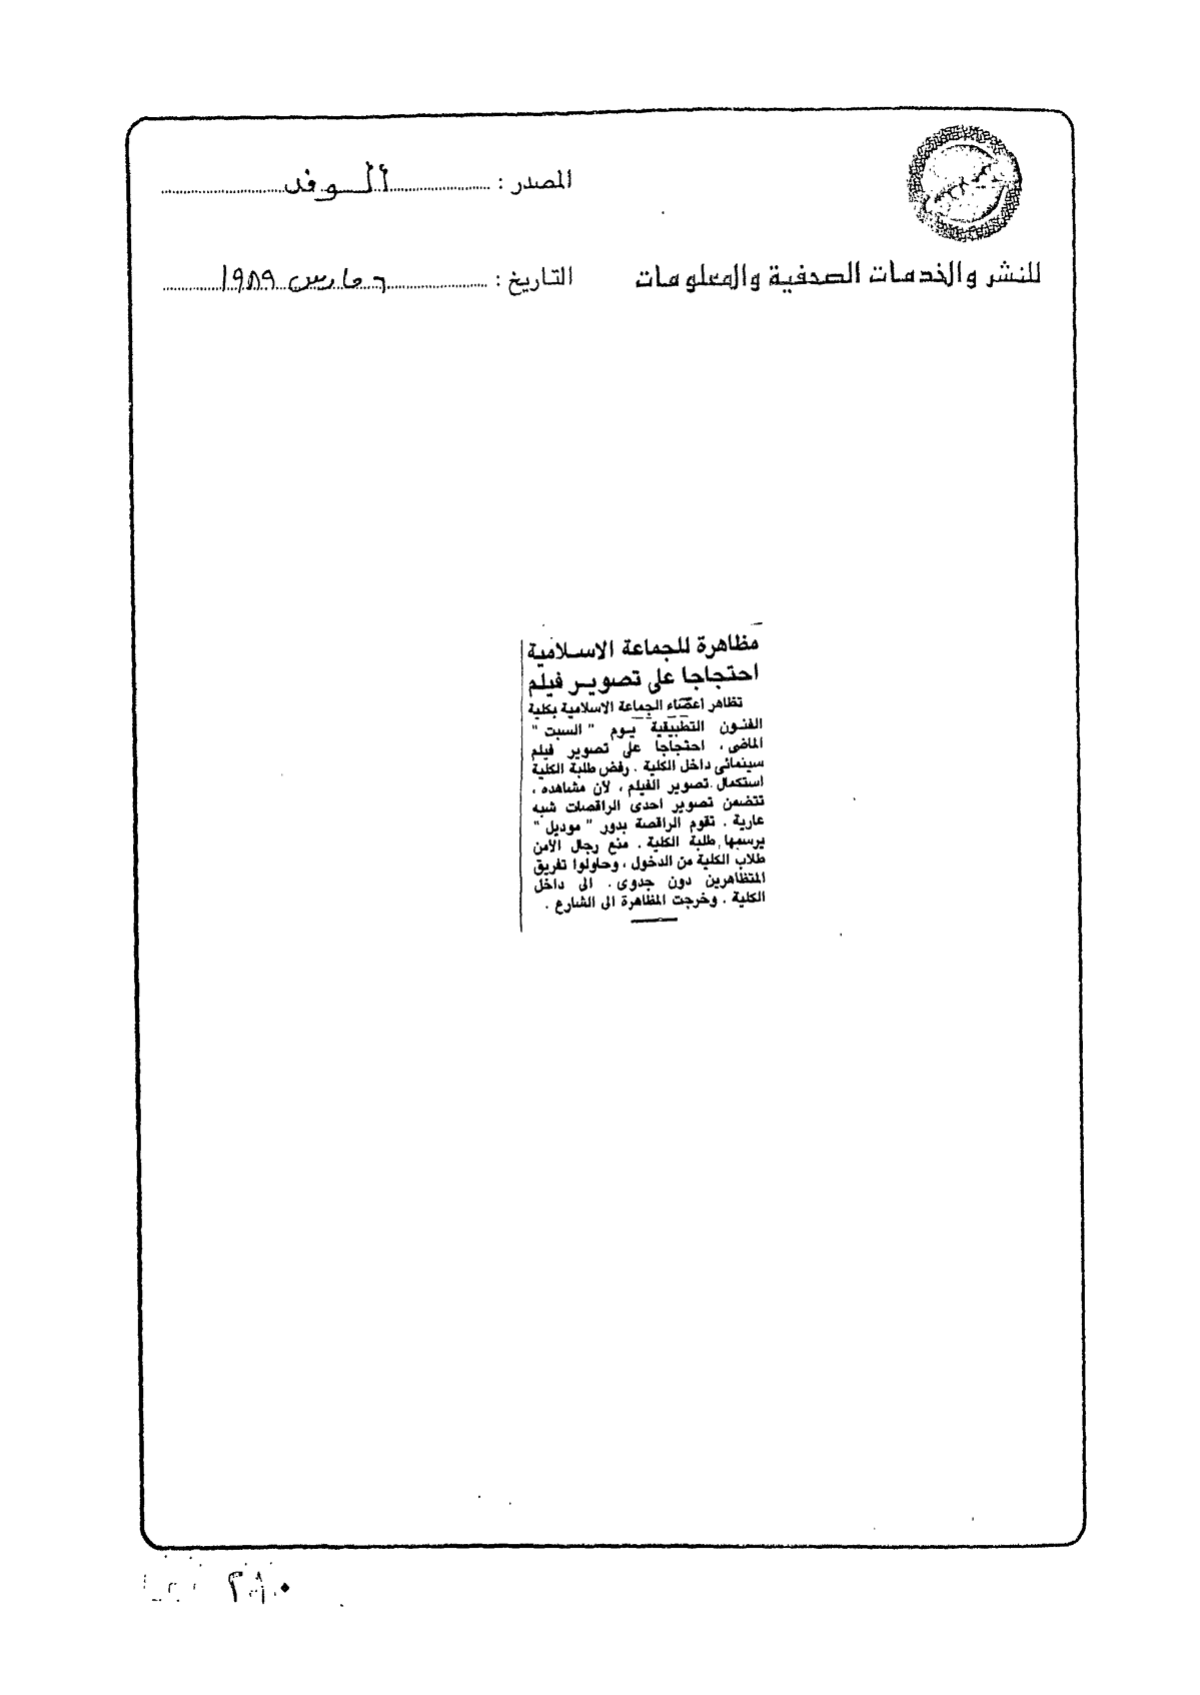 المصدر : الوفد
للنشر والخدمات الصحفية والمعلومات
التاريخ : ٦ مارس ١٩٨٩
مظاهرة للجماعة الاسلامية
احتجاجا على تصوير فيلم
تظاهر اعضاء الجماعة الاسلامية بكلية
الفنون التطبيقية يوم " السبت "
الماضى ، احتجاجا على تصوير فيلم
سينمائى داخل الكلية . رفض طلبة الكلية
استكمال تصوير الفيلم ، لان مشاهده ،
تتضمن تصوير احدى الراقصات شبه
عارية . تقوم الراقصة بدور " موديل "
يرسمها طلبة الكلية . منع رجال الأمن
طلاب الكلية من الدخول ، وحاولوا تفريق
المتظاهرين دون جدوى . الى داخل
الكلية . وخرجت المظاهرة الى الشارع .
٢٨٠